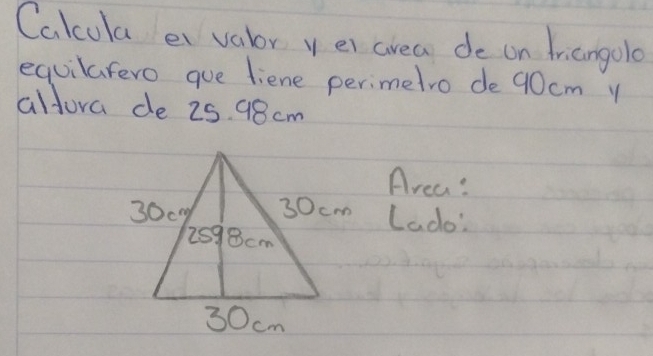 Calcula el valor y el area de un triangulo
equilatero que tiene perimetro de 90cm y
altura de 25.98cm
Area:
30cm
30cm
Lado:
2598cm
30cm